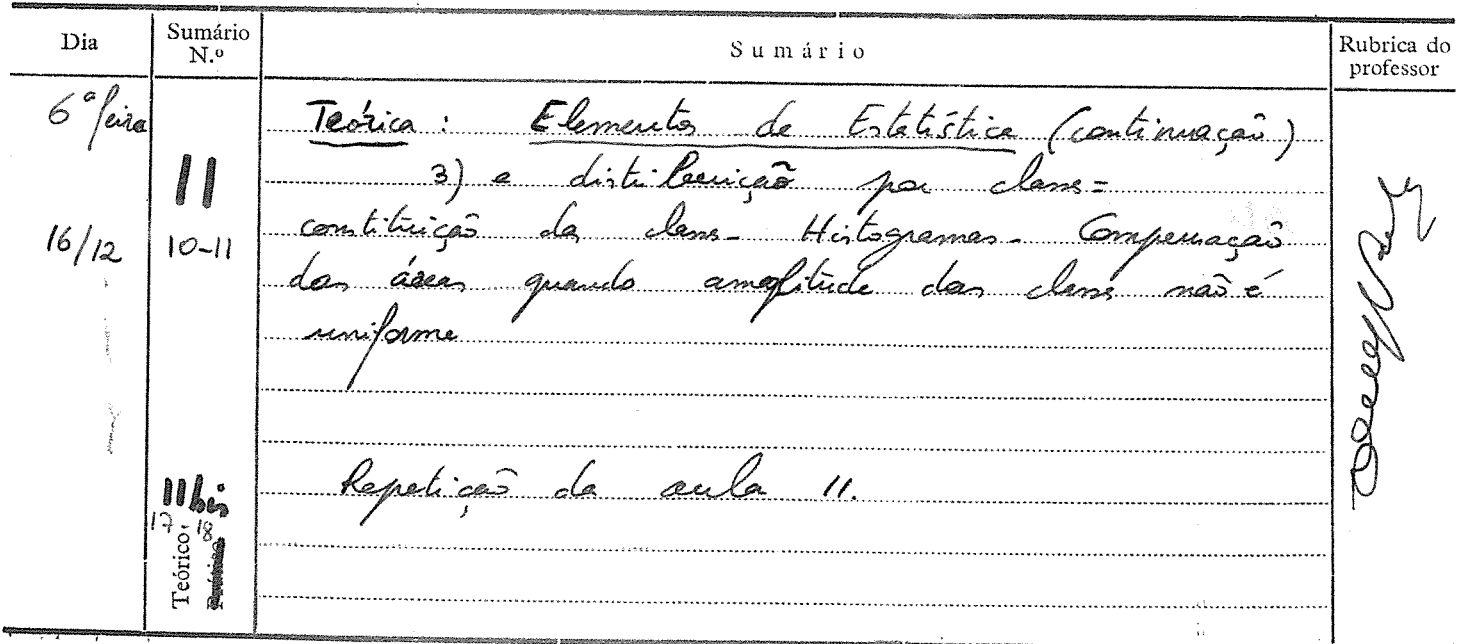 Dia
Sumário N.º
Sumário
Rubrica do professor
6ª feira
Teórica : Elementos de Estatística (continuação)
11
3) a distribuição por classes=
16/12
10-11
constituição das classes- Histogramas- Compensação
das áreas quando amplitude das classes não é
uniforme
11 bis
Repetição da aula 11.
17 18
Teórico